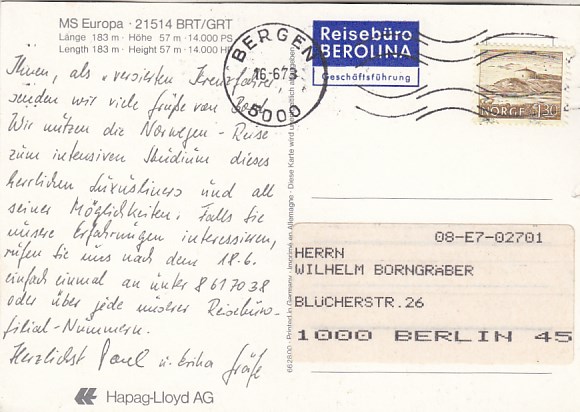 MS Europa · 21514 BRT/GRT
Länge 183 m · Höhe 57 m · 14.000 PS
Length 183 m · Height 57 m · 14.000 HP
Ihnen, als "versierten Kreuzfahrer",
senden wir viele Grüße von Bord.
Wir nützen die Norwegen-Reise
zum intensiven Studium dieses
herrlichen Luxusliners und all
seiner Möglichkeiten. Falls Sie
unsere Erfahrungen interessieren,
rufen Sie uns nach dem 18.6.
einfach einmal an unter 8617038
oder über jede unserer Reisebüro-
filial-Nummern.
Herzlichst Paul u. Erika Gräfe
Hapag-Lloyd AG
BERGEN
16-6 73
5000
Reisebüro
BEROLINA
Geschäftsführung
NORGE 1.30
662800 · Printed in Germany · Imprimé en Allemagne · Diese Karte wird unentgeltlich abgegeben
08-E7-02701
HERRN
WILHELM BORNGRÄBER
BLÜCHERSTR.26
1000 BERLIN 45